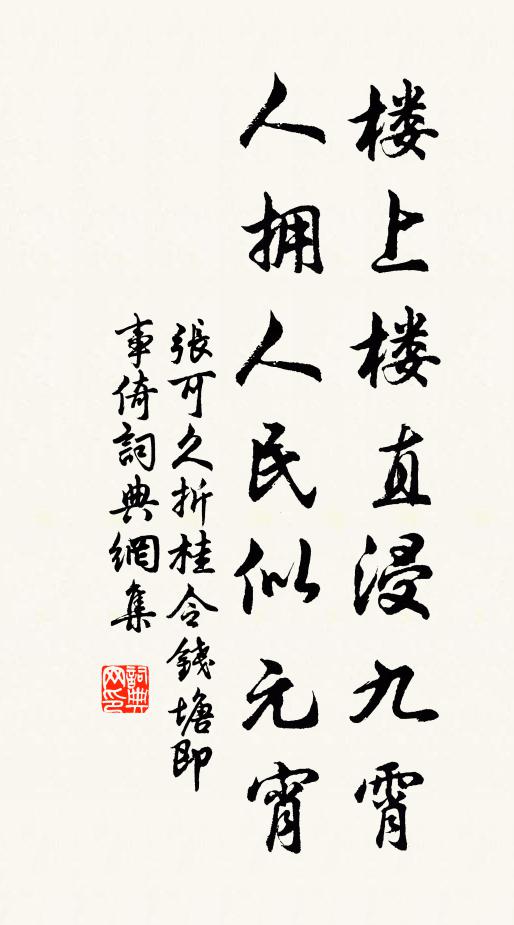 楼上楼直浸九霄
人拥人民似元宵
張可久折桂令錢塘即
事倚詞典網集
詞典网印